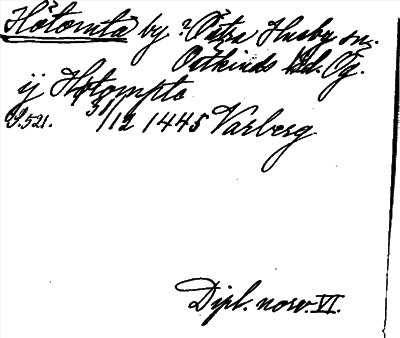 Håtomta by ? Östra Husby sn.
Östkinds hd. Ög.
ij Hatompte
S. 521. 3/12 1445 Varberg
Dipl. norv. VI.